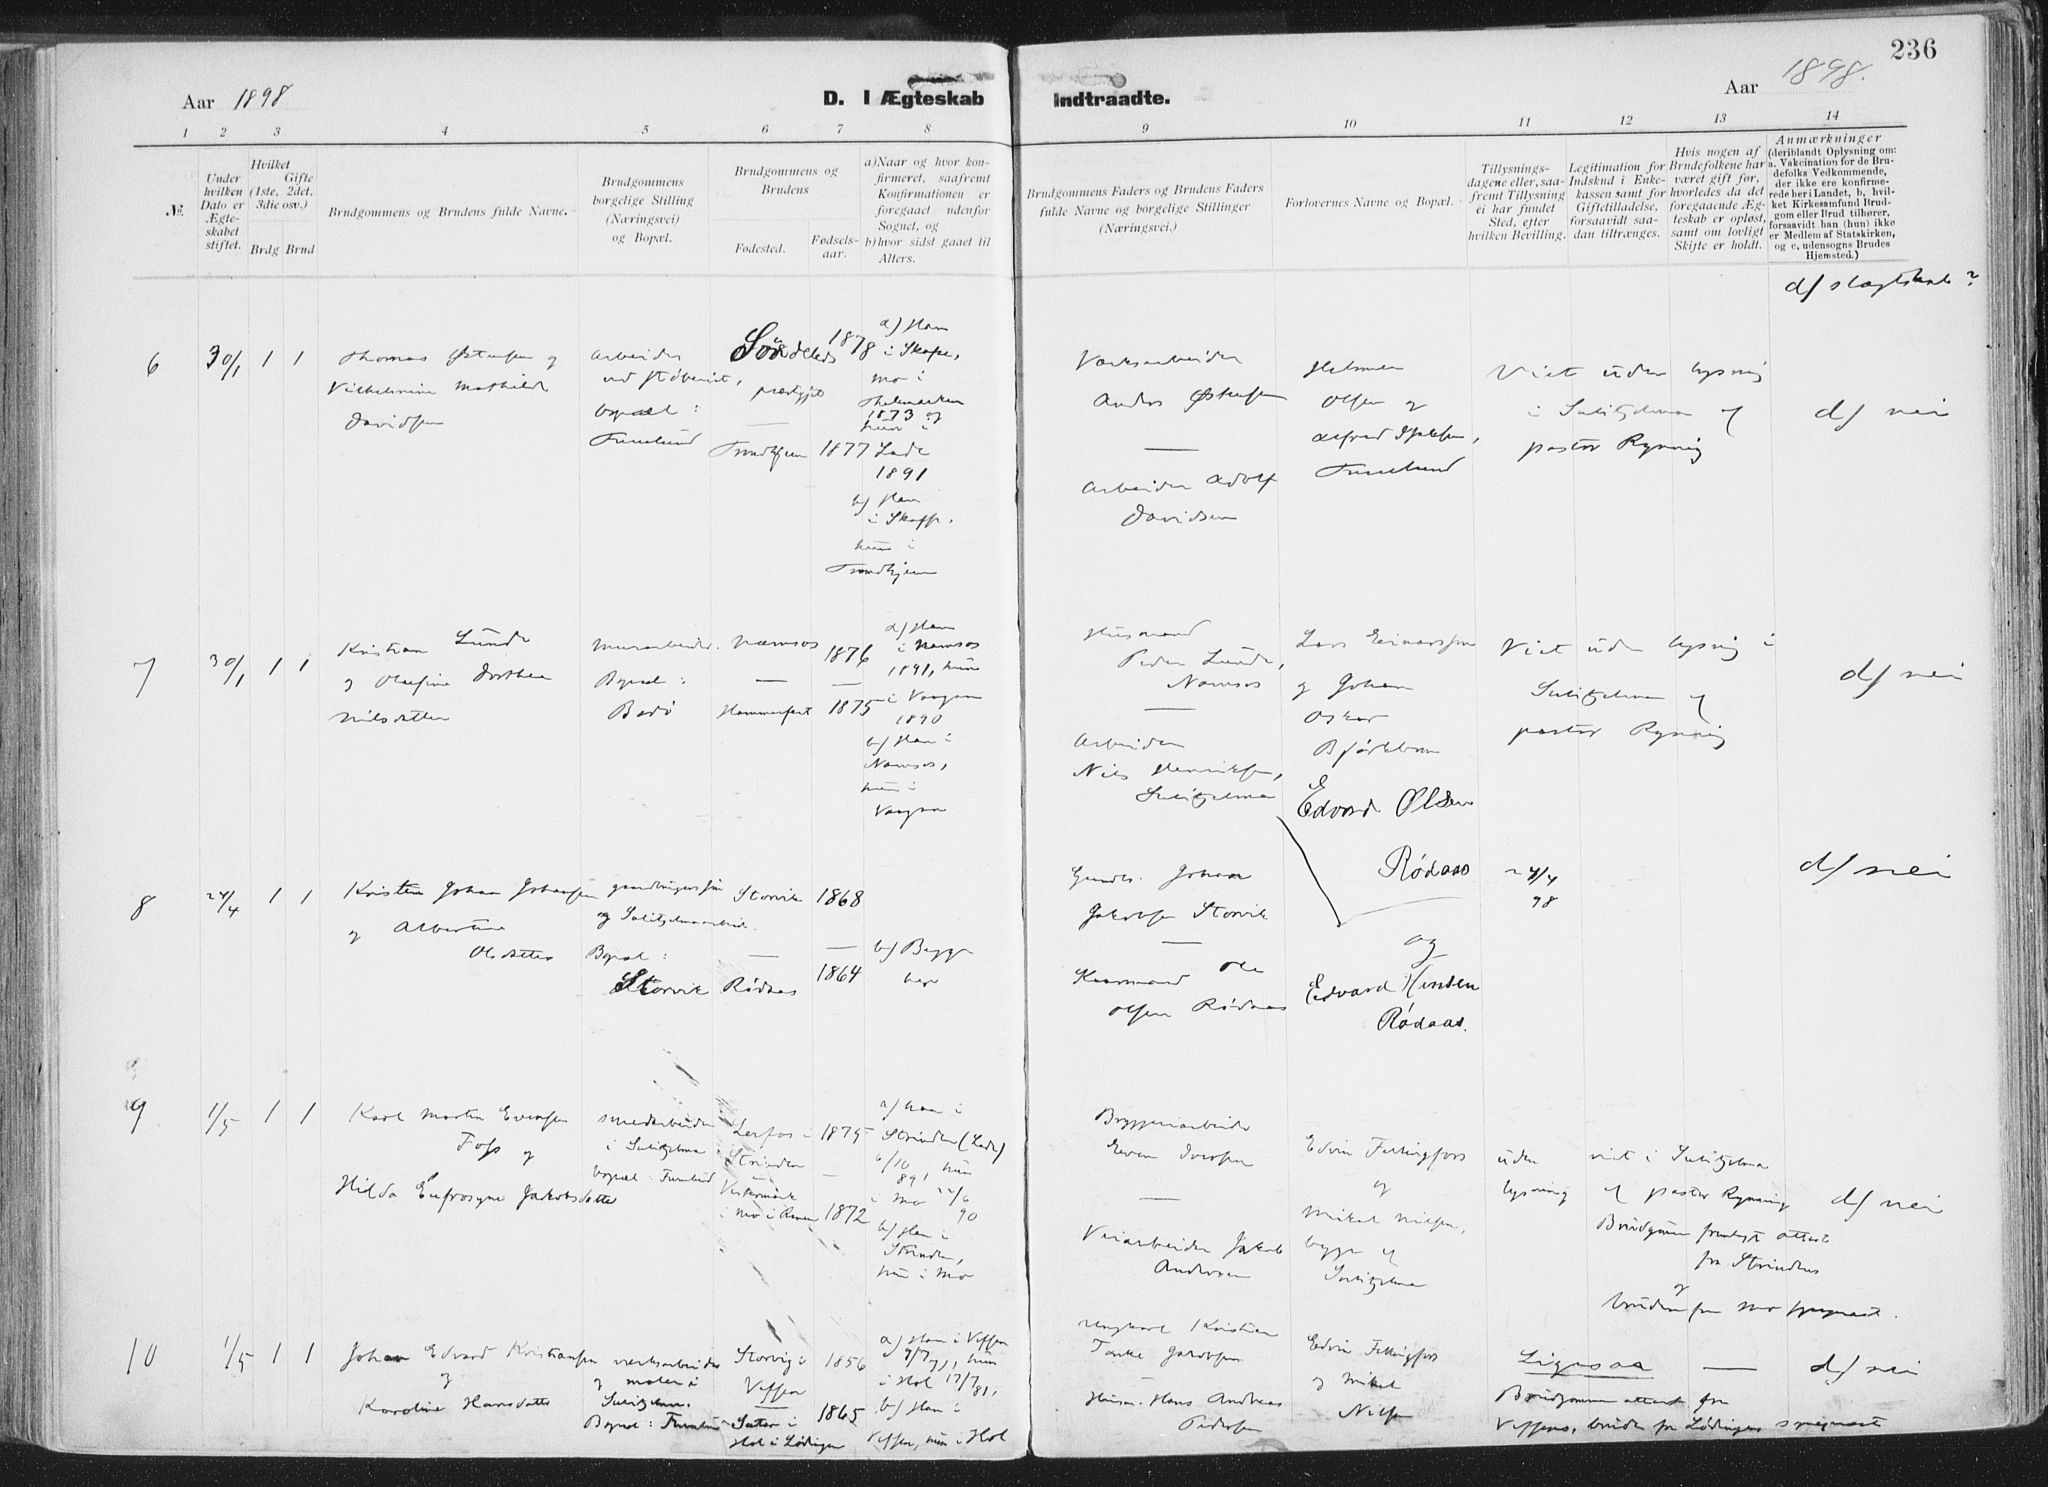 236
Aar 1898
D. I Ægteskab Indtraadte.
Aar 1898.
1 2 3 4 5 6 7 8 9 10 11 12 13 14
№.
Under hvilken Dato er Ægteskabet stiftet.
Hvilket Gifte (1ste, 2det, 3die osv.)
Brdg Brud
Brudgommens og Brudens fulde Navne.
Brudgommens borgelige Stilling (Næringsvei) og Bopæl.
Brudgommens og Brudens
Fødested.
Fødselsaar.
a) Naar og hvor konfirmeret, saafremt Konfirmationen er foregaaet udenfor Sognet, og
b) hvor sidst gaaet til Alters.
Brudgommens Faders og Brudens Faders fulde Navne og borgelige Stillinger (Næringsvei.)
Forlovernes Navne og Bopæl.
Tillysningsdagene eller, saafremt Tillysning ei har fundet Sted, efter hvilken Bevilling.
Legitimation for Indskud i Enkekassen samt for Giftetilladelse, forsaavidt saadan tiltrænges.
Hvis nogen af Brudefolkene har været gift før, hvorledes da det foregaaende Ægteskab er opløst, samt om lovligt Skifte er holdt.
Anmærkninger (deriblandt Oplysning om: a. Vakcination for de Brudefolks Vedkommende, der ikke ere konfirmerede her i Landet, b, hvilket Kirkesamfund Brudgom eller Brud tilhører, forsaavidt han (hun) ikke er Medlem af Statskirken, og c, udensogns Brudes Hjemsted.)
d/ slægtskab?
6 30/1 1 1
Thomas Østensen og
Vilhelmine Mathilde
Davidsen
Arbeider
ved
bopæl:
Furulund
Søndeleds
præstgjeld
—
Trondhjem
1878
1877
a) Han
i Skafse,
Mo i
Thelemarken
1873 og
hun i
Lade
1891
b) Han
i Skafse,
hun i
Trondhjem
Værksarbeider
Anders Østensen
—
Arbeider Adolf
Davidsen
Olsen og
Alfred
Furulund
Viet uden lysning
i Sulitjelma af
pastor Rynning
d/ nei
7 30/1 1 1
Kristian Lunde
og Olufine Dorthea
Nilsdatter
Murarbeider.
Bopæl:
Bodø
Namsos
—
Hammerfest
1876
—
1875
a) Han
i Namsos
1891, hun
i Vaagan
1890
b) Han i
Namsos,
hun i
Vaagan
Husmand
Peder Lunde,
Namsos
—
Arbeider
Nils Henriksen,
Sulitjelma
Lars Einarssen
og Johan
Oskar
Viet uden lysning i
Sulitjelma af
pastor Rynning
d/ nei
8 24/4 1 1
Kristen Johan Johansen
og Albertine
Olsdatter
gaardbrugersøn
og Sulitjelmaarbeid.
Bopæl:
Storvik
Storvik
—
Rødaas
1868
—
1864
b) Begge
her
Gaardbr. Johan
Jakobsen Storvik
—
Kaarmand Ole
Olsen Rødaas
Edvard Olsen
Rødaas
og
Edvard Hansen
Rødaas.
24/4
98
d/ nei
9 1/5 1 1
Karl Martin Evensen
Foss og
Hilda Eufrosyne Jakobsdatter
smedarbeider
i Sulitjelma
bopæl: Furulund
Lerfos i
Strinden
—
i Mo i Ranen
1875
—
1872
a) han i
Strinden (Lade)
6/10
891, hun
i Mo 22/6
90
b) Han i
Strinden,
hun i Mo
Bryggeriarbeider
Even Iversen
—
Veiarbeider Jakob
Andersen
Edvin Fellingfors
og
Mikal Nilsen,
begge af
Sulitjelma
uden
lysning
viet i Sulitjelma
af pastor Rynning
Brudgom fremlagt attest
fra Strindens
og
bruden fra Mo sogneprest.
d/ nei
10 1/5 1 1
Johan Edvard Kristiansen
og
Karoline Hansdatter
værksarbeider
og maler i
Sulitjelma.
Bopæl: Furulund
Storvig i
Vefsen
—
Sæter i
Hol i Lødingen
1856
—
1865
a) Han i Vefsen
hun
i Hol 17/7
81,
b) Han i
Vefsen, hun i Hol
Ungkarl Kristian
Tanke Jakobsen
Husm. Hans Andreas
Pedersen
Edvin Fellingfors
og Mikal
Nilsen
Ligesaa —
Brudgommen attest fra
Vefsens, bruden fra Lødingens sogneprest
d/ nei